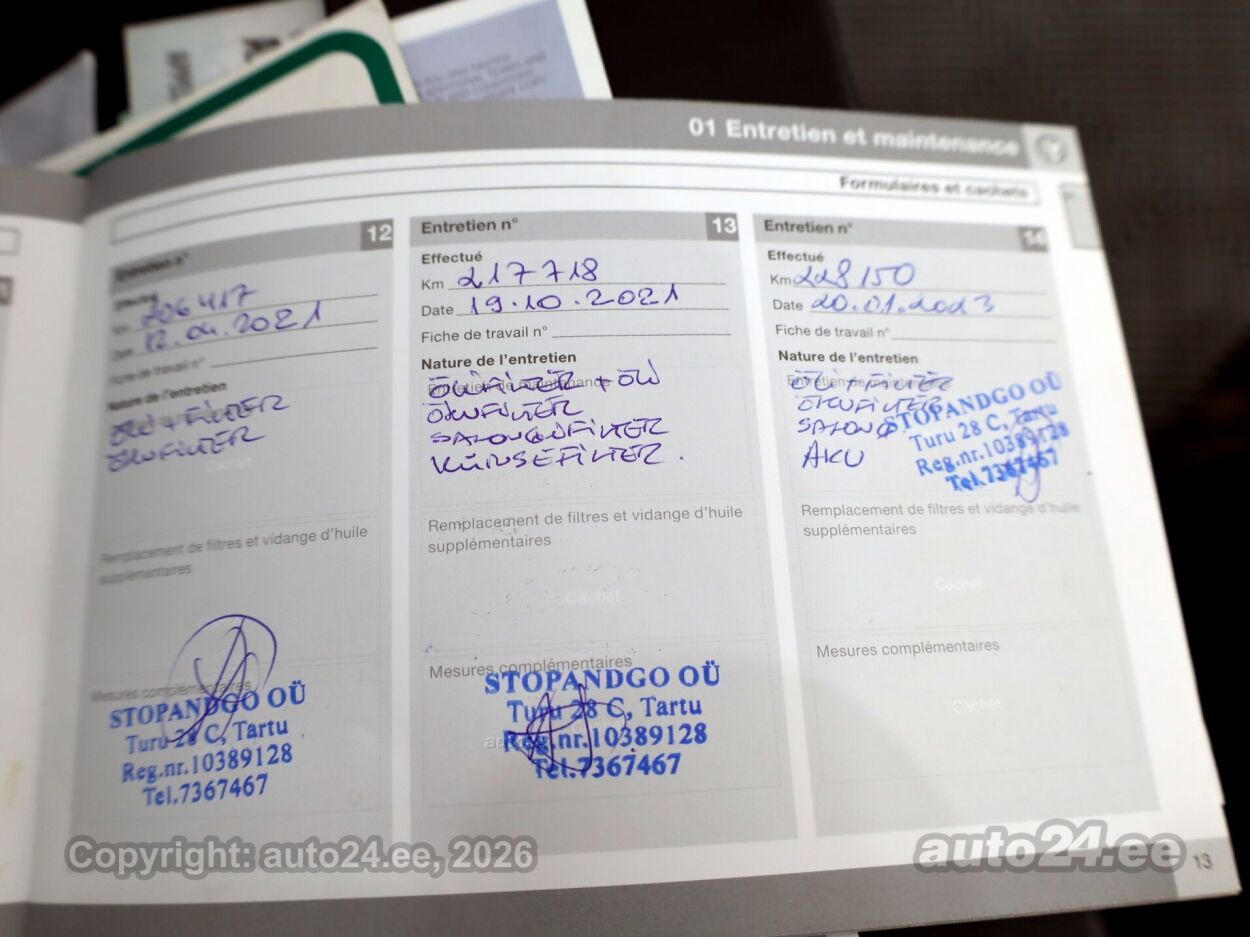 01 Entretien et maintenance
Formulaires et cachets
Entretien n° 12
Effectué
Km 206417
Date 12.04.2021
Fiche de travail n°
Nature de l'entretien
ÕLI + FILTER
ÕHUFILTER
Cachet
Remplacement de filtres et vidange d'huile
supplémentaires
Mesures complémentaires
STOPANDGO OÜ
Turu 28 C, Tartu
Reg.nr.10389128
Tel.7367467
Entretien n° 13
Effectué
Km 217718
Date 19.10.2021
Fiche de travail n°
Nature de l'entretien
Entretien de maintenance
ÕLIFILTER + ÕLI
ÕHUFILTER
SALONGIFILTER
KÜTUSEFILTER.
Remplacement de filtres et vidange d'huile
supplémentaires
Cachet
Mesures complémentaires
STOPANDGO OÜ
Turu 28 C, Tartu
Reg.nr.10389128
Tel.7367467
Entretien n° 14
Effectué
Km 228150
Date 20.01.2023
Fiche de travail n°
Nature de l'entretien
Entretien de maintenance
ÕLI + FILTER
ÕHUFILTER
AKU
STOPANDGO OÜ
Turu 28 C, Tartu
Reg.nr.10389128
Tel.7367467
Remplacement de filtres et vidange d'huile
supplémentaires
Cachet
Mesures complémentaires
Cachet
13
Copyright: auto24.ee, 2026
auto24.ee